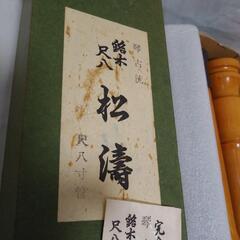 琴古流
銘木
尺八
松濤
尺八寸管
銘木
尺八
琴